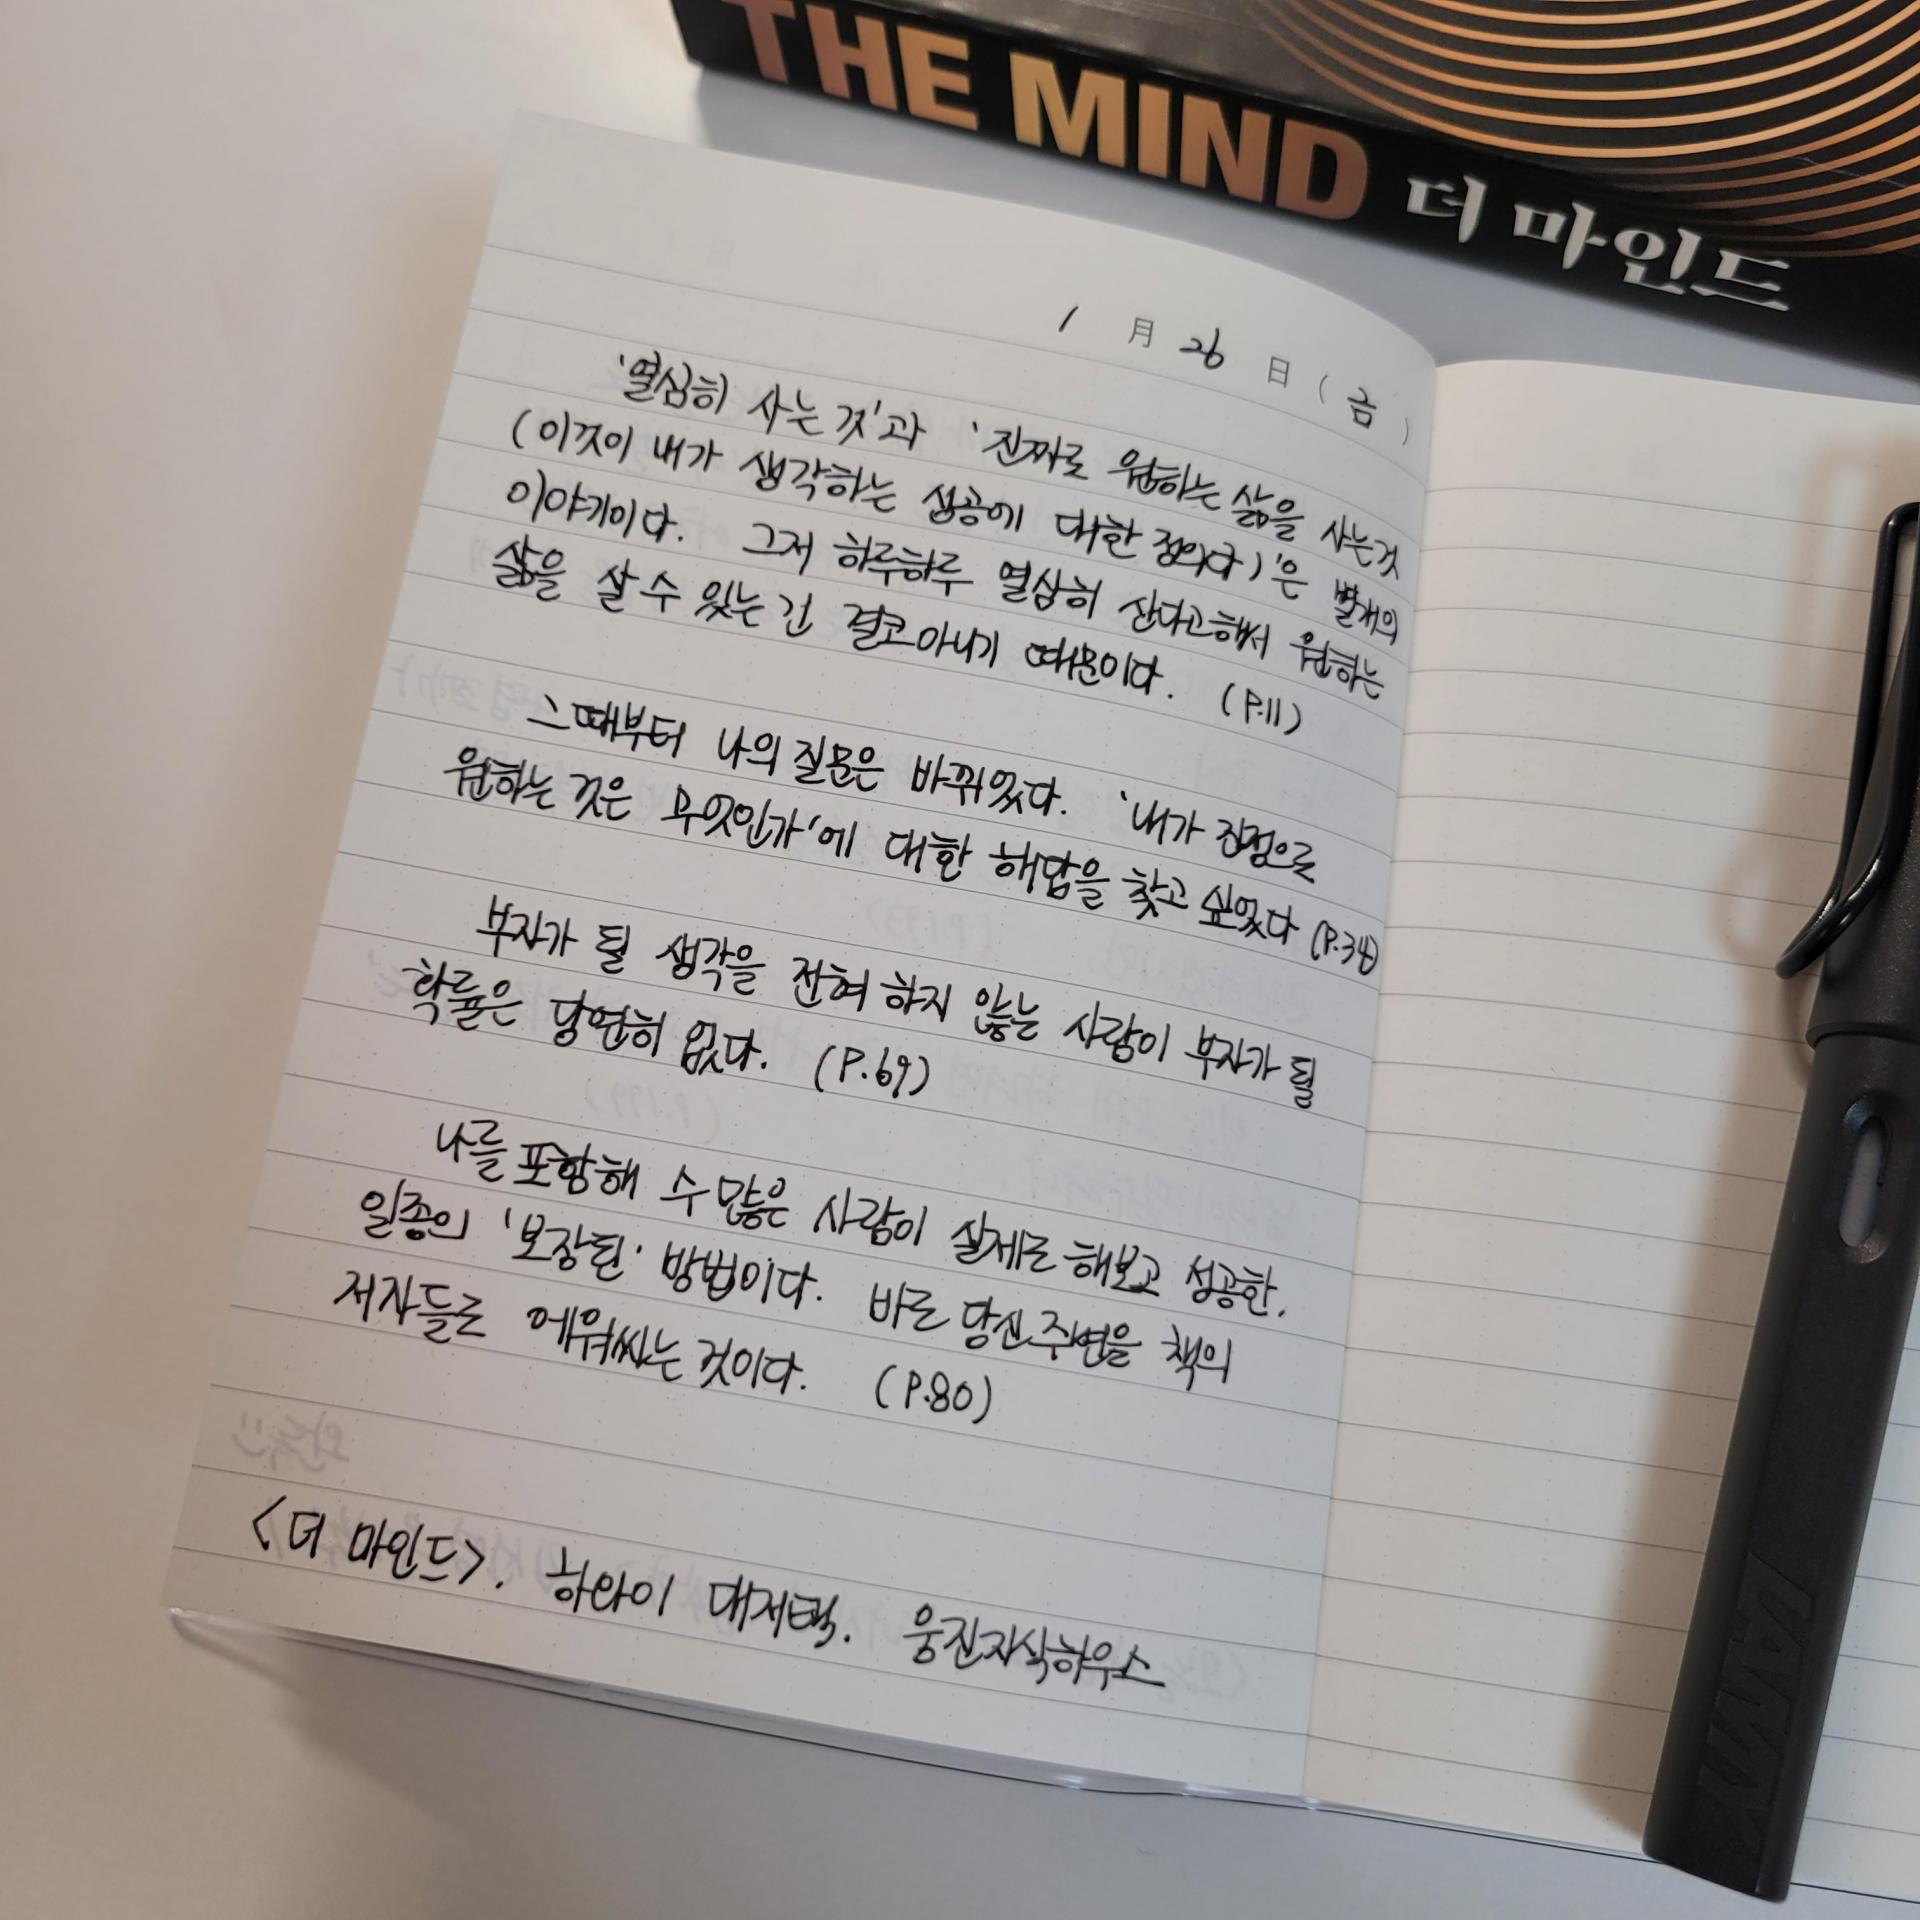 THE MIND 더 마인드
1 月 26 日 (금)
'열심히 사는 것'과 '진짜로 원하는 삶을 사는것
(이것이 내가 생각하는 성공에 대한 정의다)'은 별개의
이야기이다. 그저 하루하루 열심히 산다고해서 원하는
삶을 살 수 있는 건 결코아니기 때문이다. (P.11)
그때부터 나의 질문은 바뀌었다. '내가 진정으로
원하는 것은 무엇인가'에 대한 해답을 찾고 싶었다 (P.34)
부자가 될 생각을 전혀 하지 않는 사람이 부자가 될
확률은 당연히 없다. (P.69)
나를 포함해 수 많은 사람이 실제로 해보고 성공한.
일종의 '보장된' 방법이다. 바로 당신 주변을 책의
저자들로 에워싸는 것이다. (P.80)
<더 마인드>. 하와이 대저택. 웅진지식하우스
LAMY